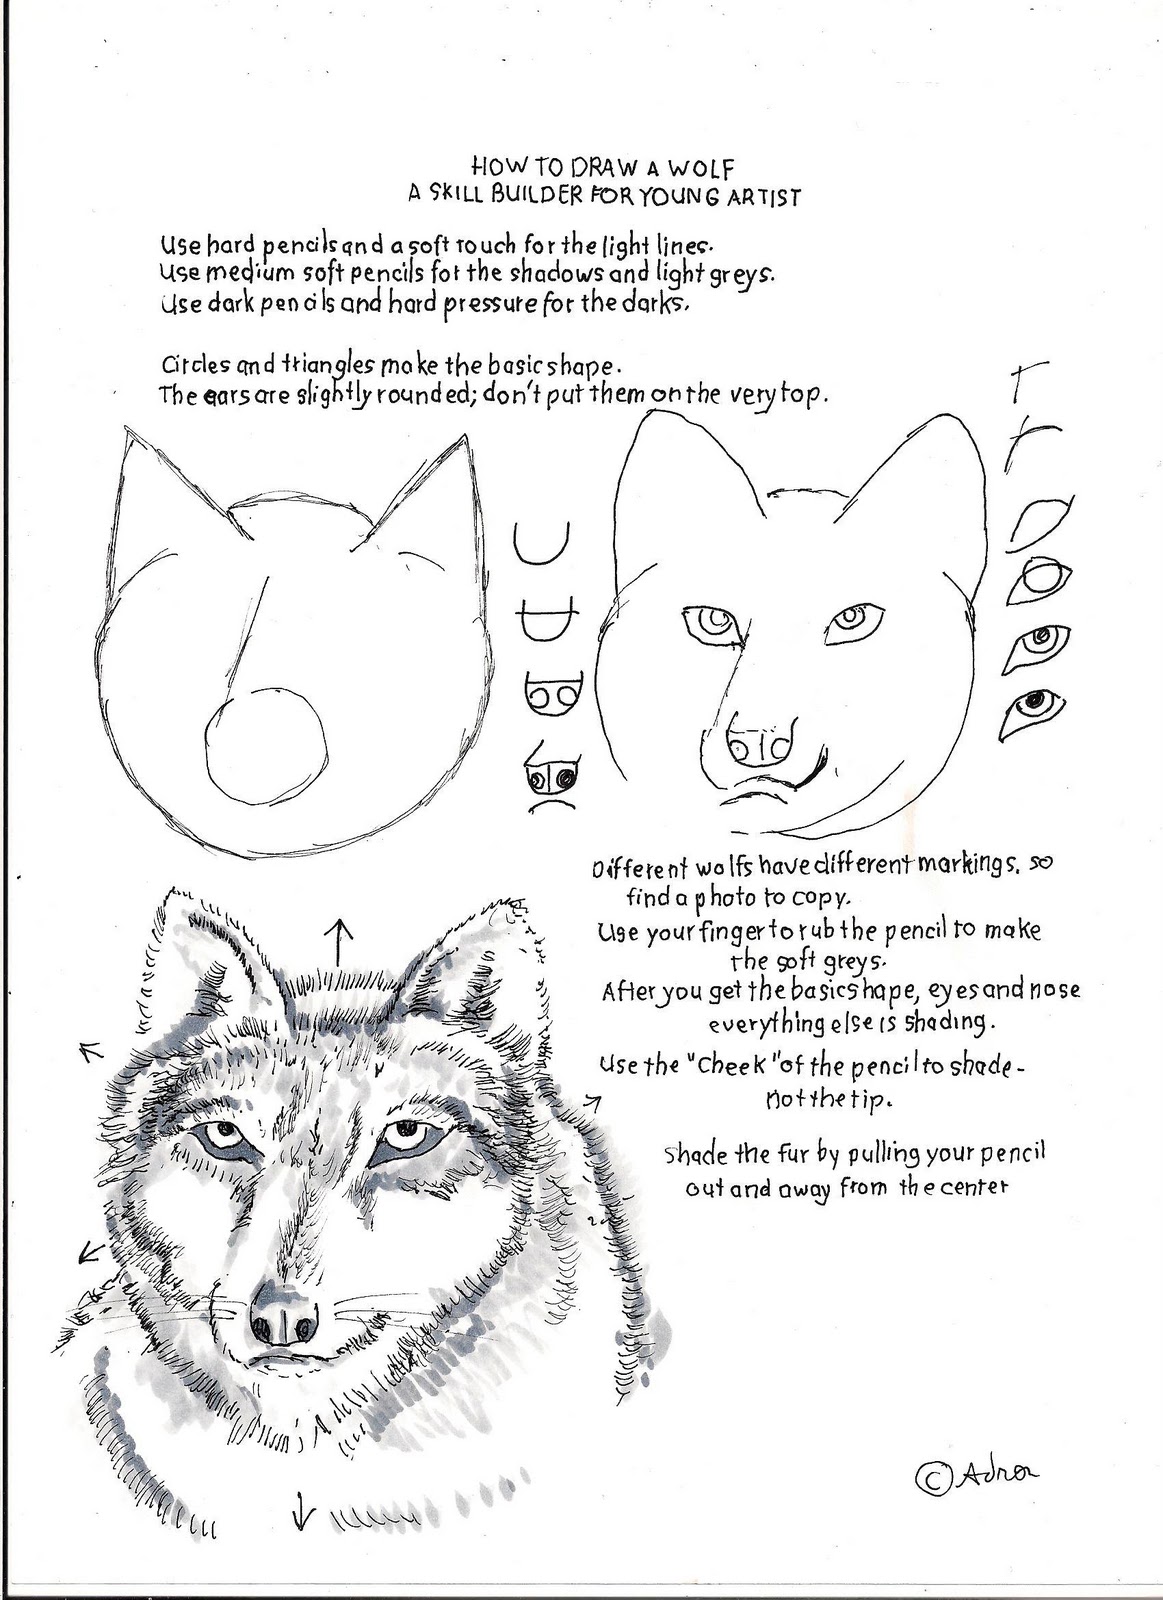 HOW TO DRAW A WOLF
A SKILL BUILDER FOR YOUNG ARTIST
Use hard pencils and a soft touch for the light lines.
Use medium soft pencils for the shadows and light greys.
Use dark pencils and hard pressure for the darks.
Circles and triangles make the basic shape.
The ears are slightly rounded; don't put them on the very top.
Different wolfs have different markings, so
find a photo to copy.
Use your finger to rub the pencil to make
the soft greys.
After you get the basic shape, eyes and nose
everything else is shading.
Use the "Cheek" of the pencil to shade -
not the tip.
Shade the fur by pulling your pencil
out and away from the center
© Adron